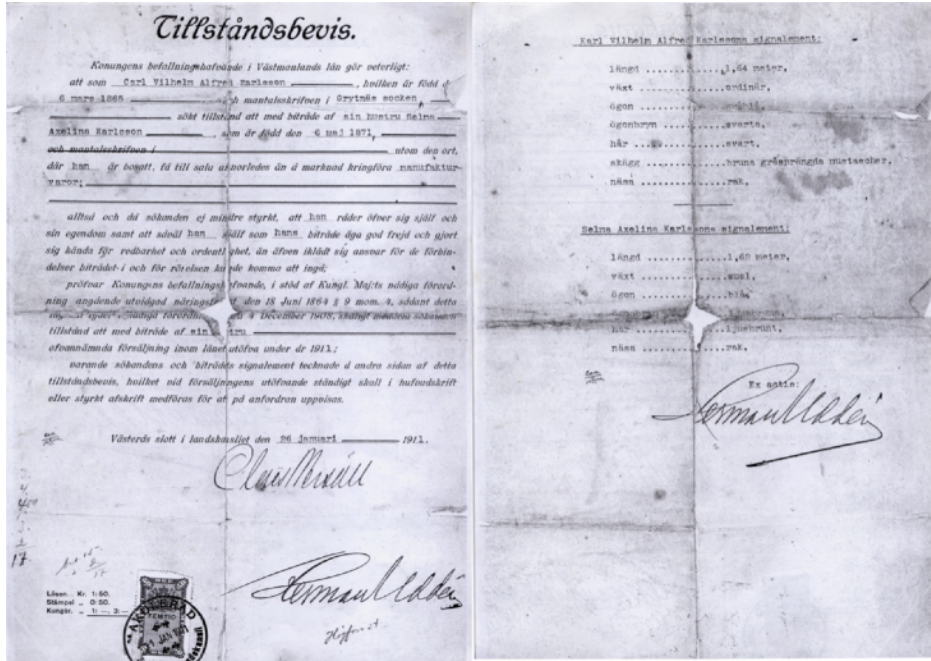 Tillståndsbevis.
Konungens befallningshafvande i Västmanlands län gör veterligt:
att som Carl Vilhelm Alfred Karlsson, hvilken är född d
6 mars 1865 och mantalsskrifven i Grytnäs socken
sökt tillstånd att med biträde af sin hustru Selma
Axelina Karlsson, som är född den 6 maj 1871,
och mantalsskrifven i utom den ort,
där han är bosatt, få till salu annorledes än å marknad kringföra manufaktur-
varor;
alltså och då sökanden ej mindre styrkt, att han råder öfver sig själf och
sin egendom samt att såväl han själf som hans biträde äga god frejd och gjort
sig kända för redbarhet och ordentlighet, än äfven iklädt sig ansvar för de förbin-
delser biträdet i och för rörelsen kunde komma att ingå;
pröfvar Konungens befallningshafvande, i stöd af Kungl. Maj:ts nådiga förord-
ning angående utvidgad näringsfrihet den 18 Juni 1864 § 9 mom. 4, sådant detta
4 December 1908, skäligt meddela sökanden
tillstånd att med biträde af sin hustru
ofvannämnda försäljning inom länet utöfva under år 1911;
varande sökandens och biträdets signalement tecknade å andra sidan af detta
tillståndsbevis, hvilket vid försäljningens utöfvande ständigt skall i hufvudskrift
eller styrkt afskrift medföras för att på anfordran uppvisas.
Västerås slott i landskansliet den 26 januari 1911.
17
Lösen Kr. 1: 50.
Stämpel „ 0: 50.
Kungör. „ 1: —, 3: —
FEMTIO
Karl Vilhelm Alfred Karlssons signalement:
längd ..........1,64 meter.
växt ..........ordinär.
ögon ..........
ögonbryn ..........svarta.
hår ..........svart.
skägg ..........bruna gråsprängda mustascher.
näsa ..........rak.
Selma Axelina Karlssons signalement:
längd ..........1,68 meter.
växt ..........smal.
ögon ..........blå
hår ..........ljusbrunt.
näsa ..........rak.
Ex actis: